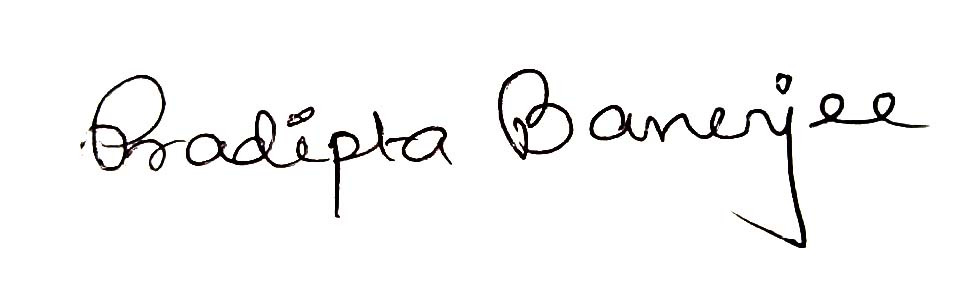 Pradipta Banerjee